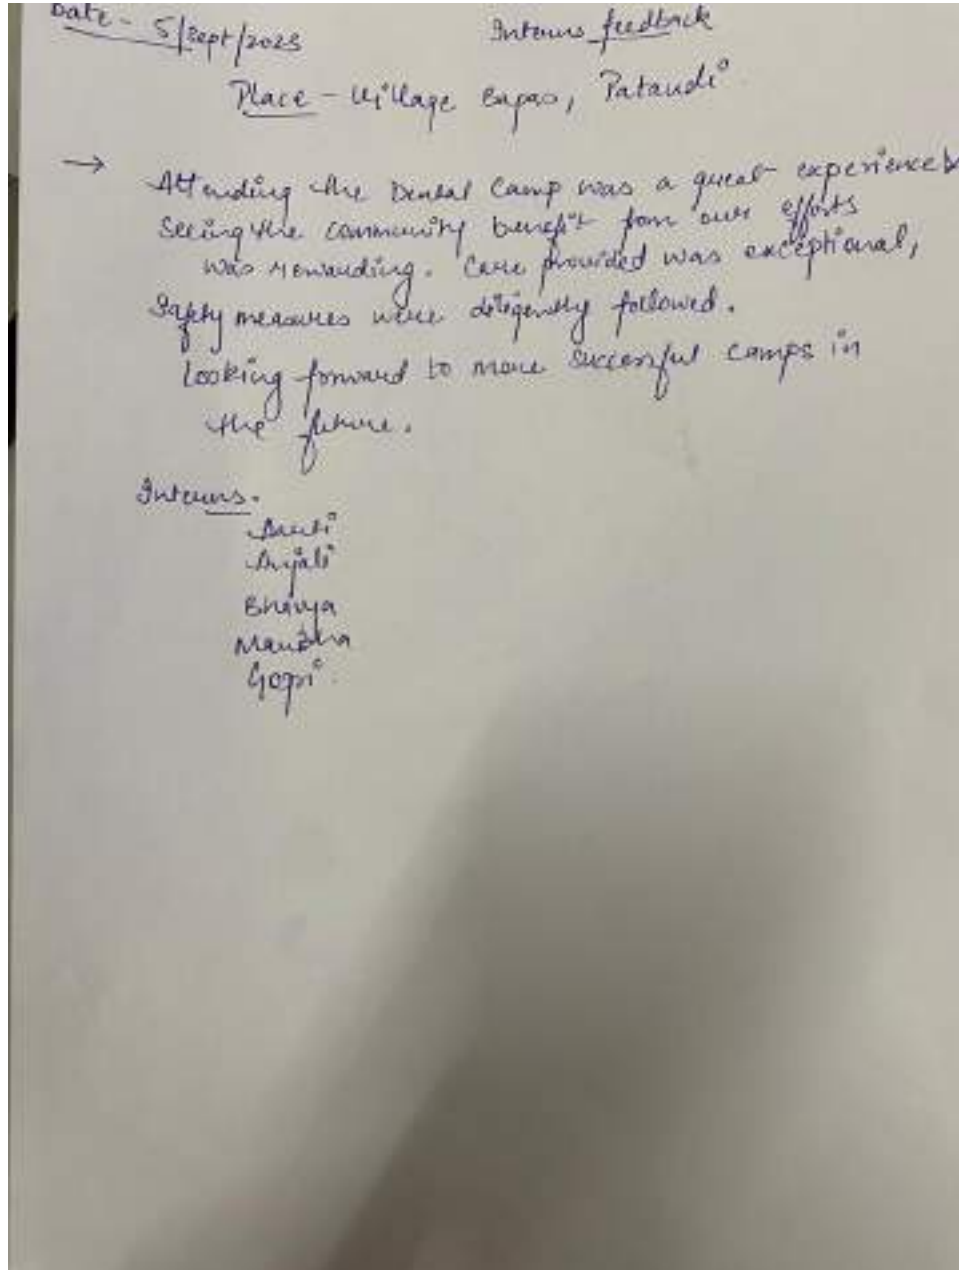 Date - 5/Sept/2023 Interns feedback
Place - Village Bapas, Pataudi
→ Attending the Dental Camp was a great experience &
Seeing the community benefit from our efforts
was rewarding. Care provided was exceptional,
Safety measures were diligently followed.
Looking forward to more successful camps in
the future.
Interns.
Anjali
Bhavya
Gopi